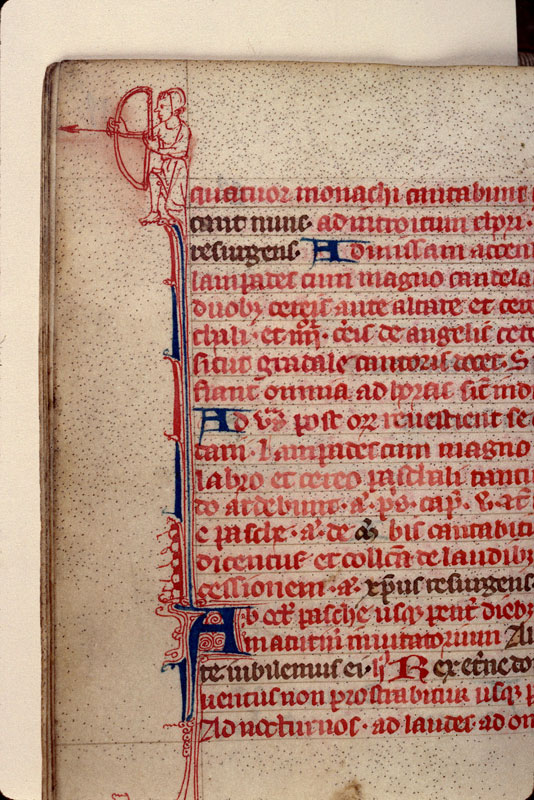 quatuor monachi cantabunt
cant nunc. ad introitum chori.
resurgens. Ad missam accen
lampades cum magno candela
duob; cereis ante altare et cere
chali. et iiii. ceis de angelis cete
sicut gradale cantoris S
fiant omnia ad horas sic in d
Ad vs post orz reuestient se
tam. Lampades cum magno
labro et cereo paschali tantu
do ardebunt. a. ps. cap. v. at
e pasche. a. de bis cantabitu
dicentus et collca de laudib;
cessionem. a. xpus resurgens.
Ab oct pasche usq; pent dieb
matutin inuitatorium All
te iubilemus ei. h Rex eterne do
uentus non prostrabitur usq; p
Ad nocturnos. ad laudes. ad om